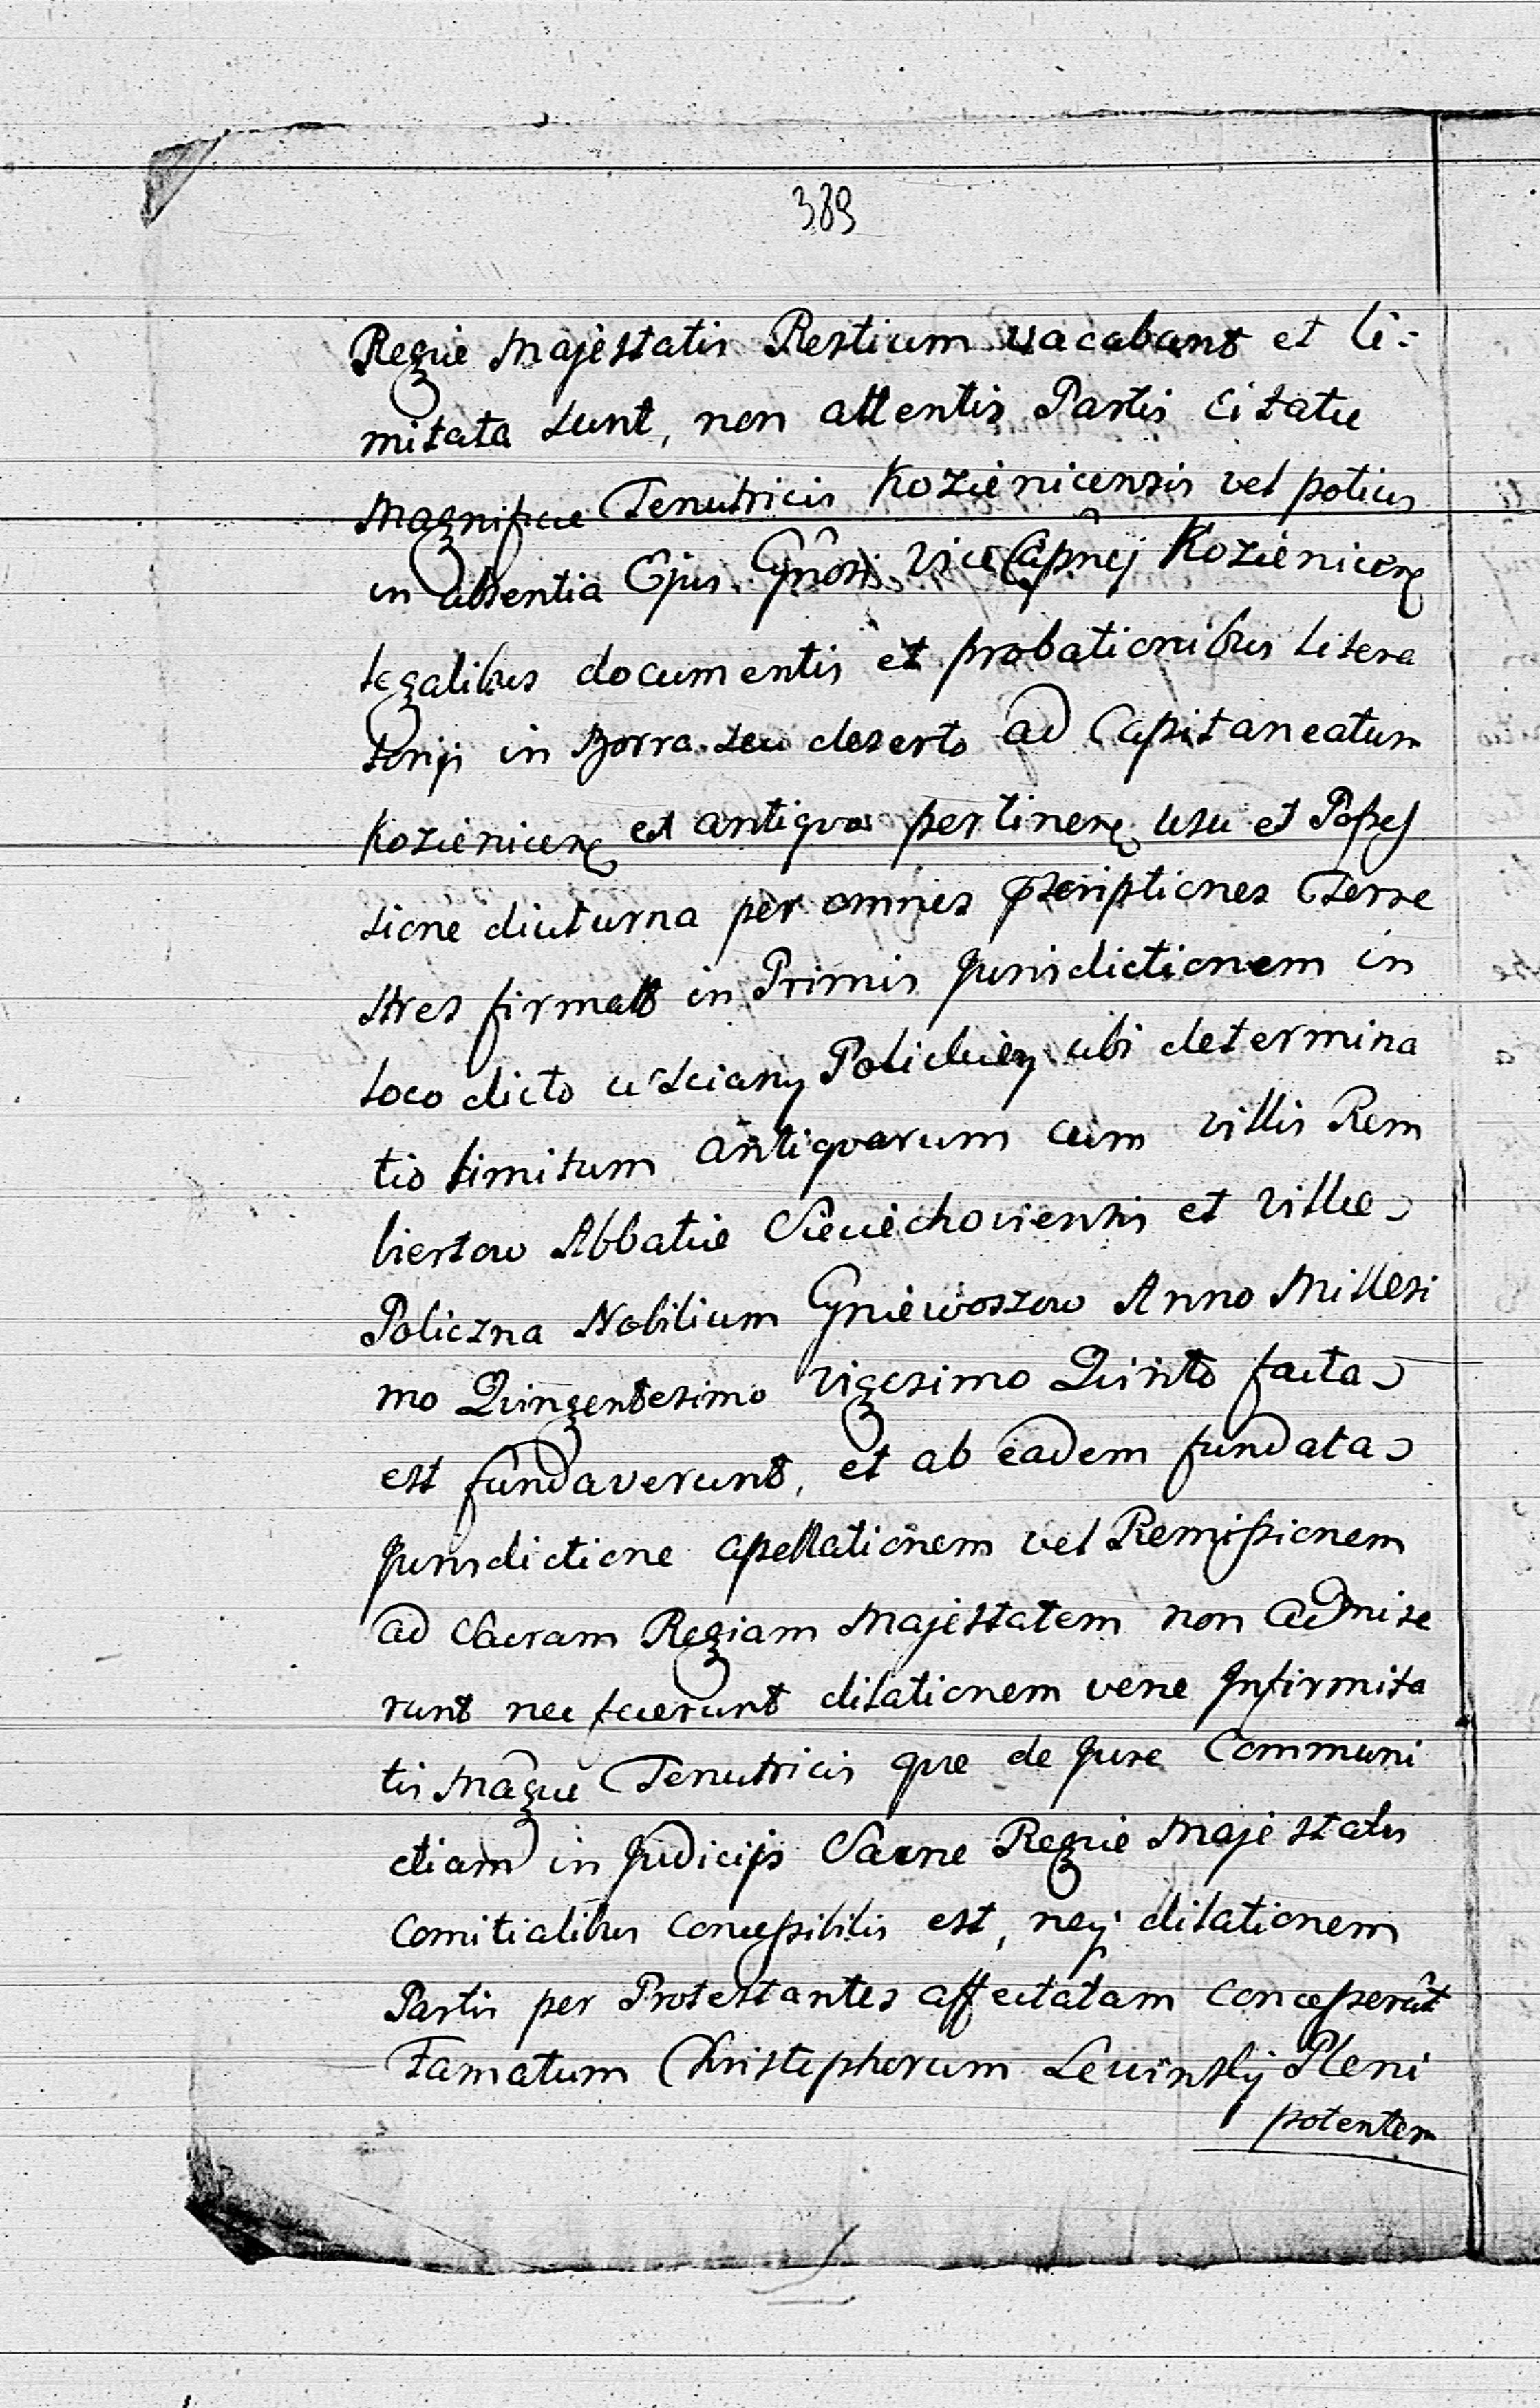 389
Regiæ Majestatis Restium vacabant et li:
mitata sunt, non attentis Partis Citatæ
Magnificæ Tenutricis Kozienicensis vel potius
in absentia Ejus Gñosi Vice Capñej Kozienicen
legalibus documentis et probationibus litera
torijs in Borra seu deserto ad Capitaneatum
Kozienicen et antiquo pertinen usu et Posses
sione diuturna per omnes pscriptiones Terre
stres firmatt in Primis Jurisdictionem in
loco dicto u Sciany Polickiey ubi determina
tio limitum antiquarum cum villis Rem
biertow Abbatiæ Sieciechoviensis et villæ
Policzna Nobilium Gniewoszow Anno Millesi
mo Quingentesimo Vigesimo Quinto facta
est fundaverunt, et ab eadem fundata
Jurisdictione apellationem vel Remissionem
ad Sacram Regiam Majestatem non admise
runt nec fecerunt dilationem veræ Infirmita
tis Mağcæ Tenutricis quæ de Jure Communi
etiam in Judicijs Sacræ Regiæ Majestatis
Comitialibus concessibilis est, neq dilationem
Partis per Protestantes affectatam concesserũt
Famatum Christophorum Lewinskij Pleni
potentem